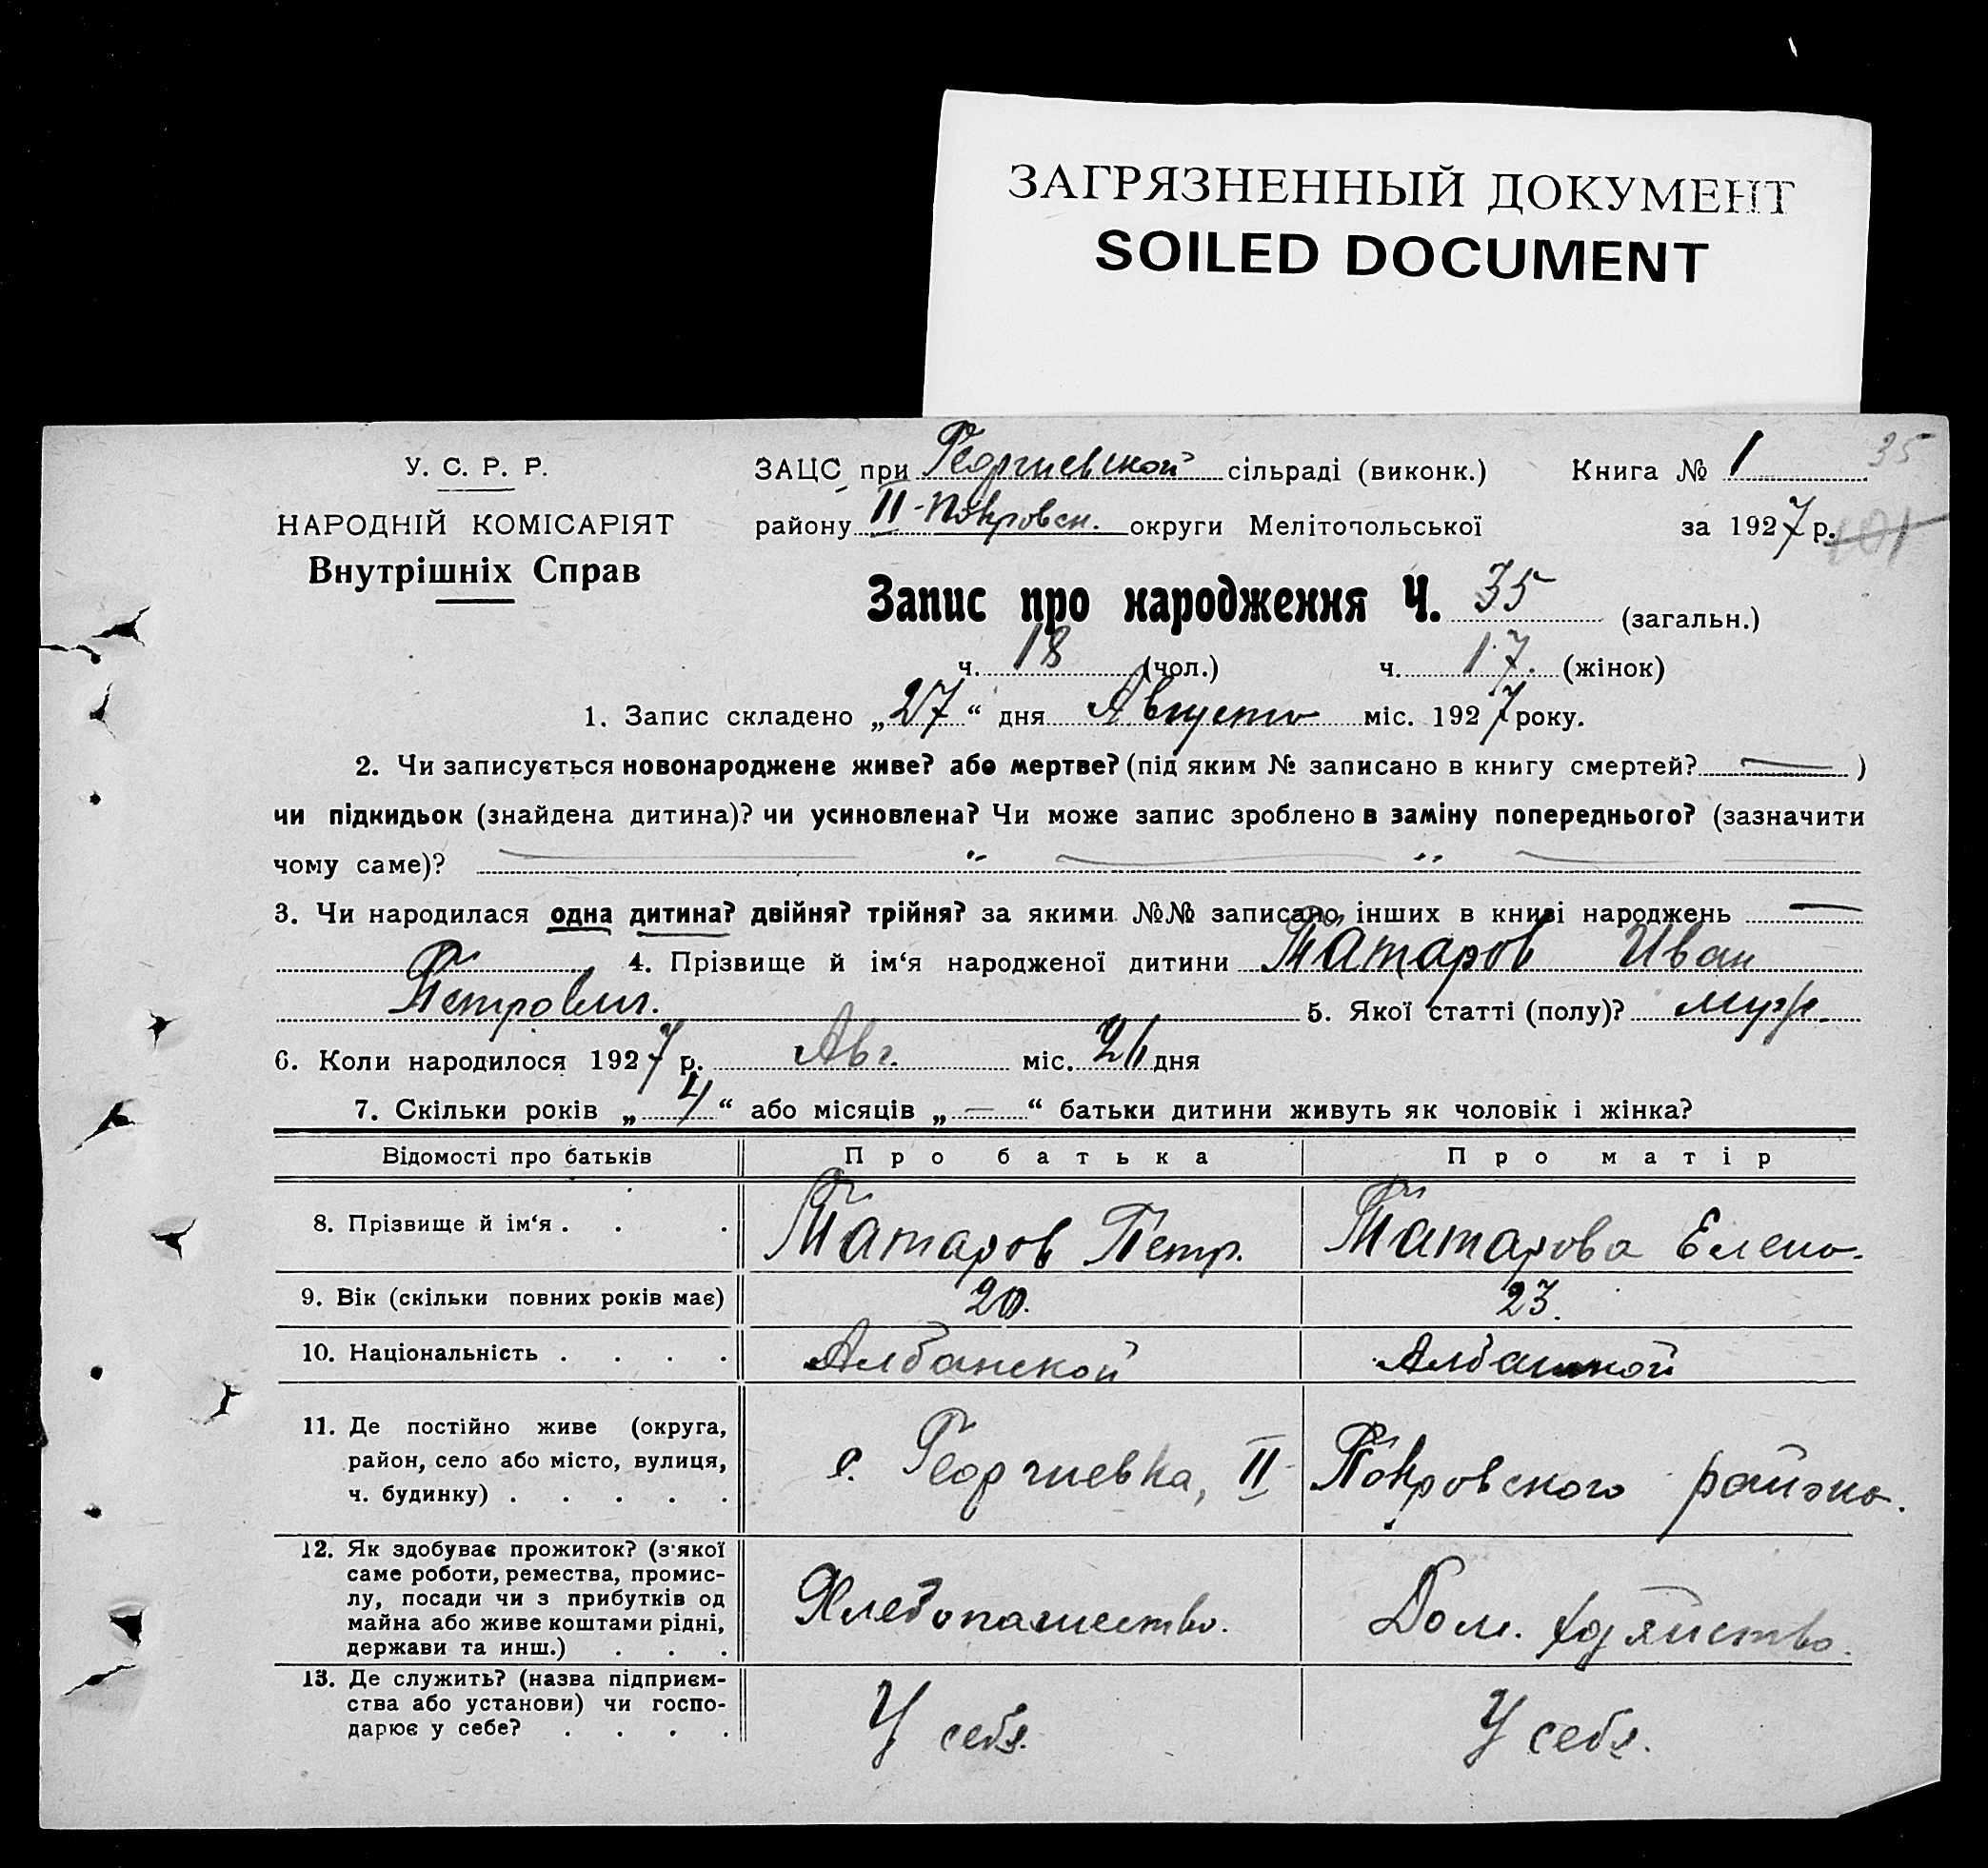 ЗАГРЯЗНЕННЫЙ ДОКУМЕНТ
SOILED DOCUMENT
35
У. С. Р. Р.
НАРОДНІЙ КОМІСАРІЯТ
Внутрішніх Справ
ЗАЦС при Георгиевской сільраді (виконк.) Книга № 1
району II-Покровск. округи Мелітопольської за 1927 р. 101
Запис про народження Ч. 35 (загальн.)
ч. 18 (чол.) ч. 17. (жінок)
1. Запис складено „27“ дня Августа міс. 1927 року.
2. Чи записується новонароджене живе? або мертве? (під яким № записано в книгу смертей? — )
чи підкидьок (знайдена дитина)? чи усиновлена? Чи може запис зроблено в заміну попереднього? (зазначити
чому саме)? — „ — „ —
3. Чи народилася одна дитина? двійня? трійня? за якими №№ записано інших в книзі народжень —
4. Прізвище й ім‘я народженої дитини Татаров Иван
Петрович. 5. Якої статті (полу)? муж.
6. Коли народилося 1927 р. Авг. міс. 21 дня
7. Скільки років „4“ або місяців „—“ батьки дитини живуть як чоловік і жінка?
Відомості про батьків Про батька Про матір
8. Прізвище й ім‘я . . . Татаров Петр. Татарова Елена.
9. Вік (скільки повних років має) 20. 23.
10. Національність . . . . Албанской Албанской
11. Де постійно живе (округа,
район, село або місто, вулиця,
ч. будинку) . . . . . с. Георгиевка, II Покровского района.
12. Як здобуває прожиток? (з‘якої
саме роботи, ремества, промис-
лу, посади чи з прибутків од
майна або живе коштами рідні,
держави та инш.) . . . Хлебопашество. Дом. хозяйство.
13. Де служить? (назва підприєм-
ства або установи) чи госпо-
дарює у себе? . . . . У себя. У себя.